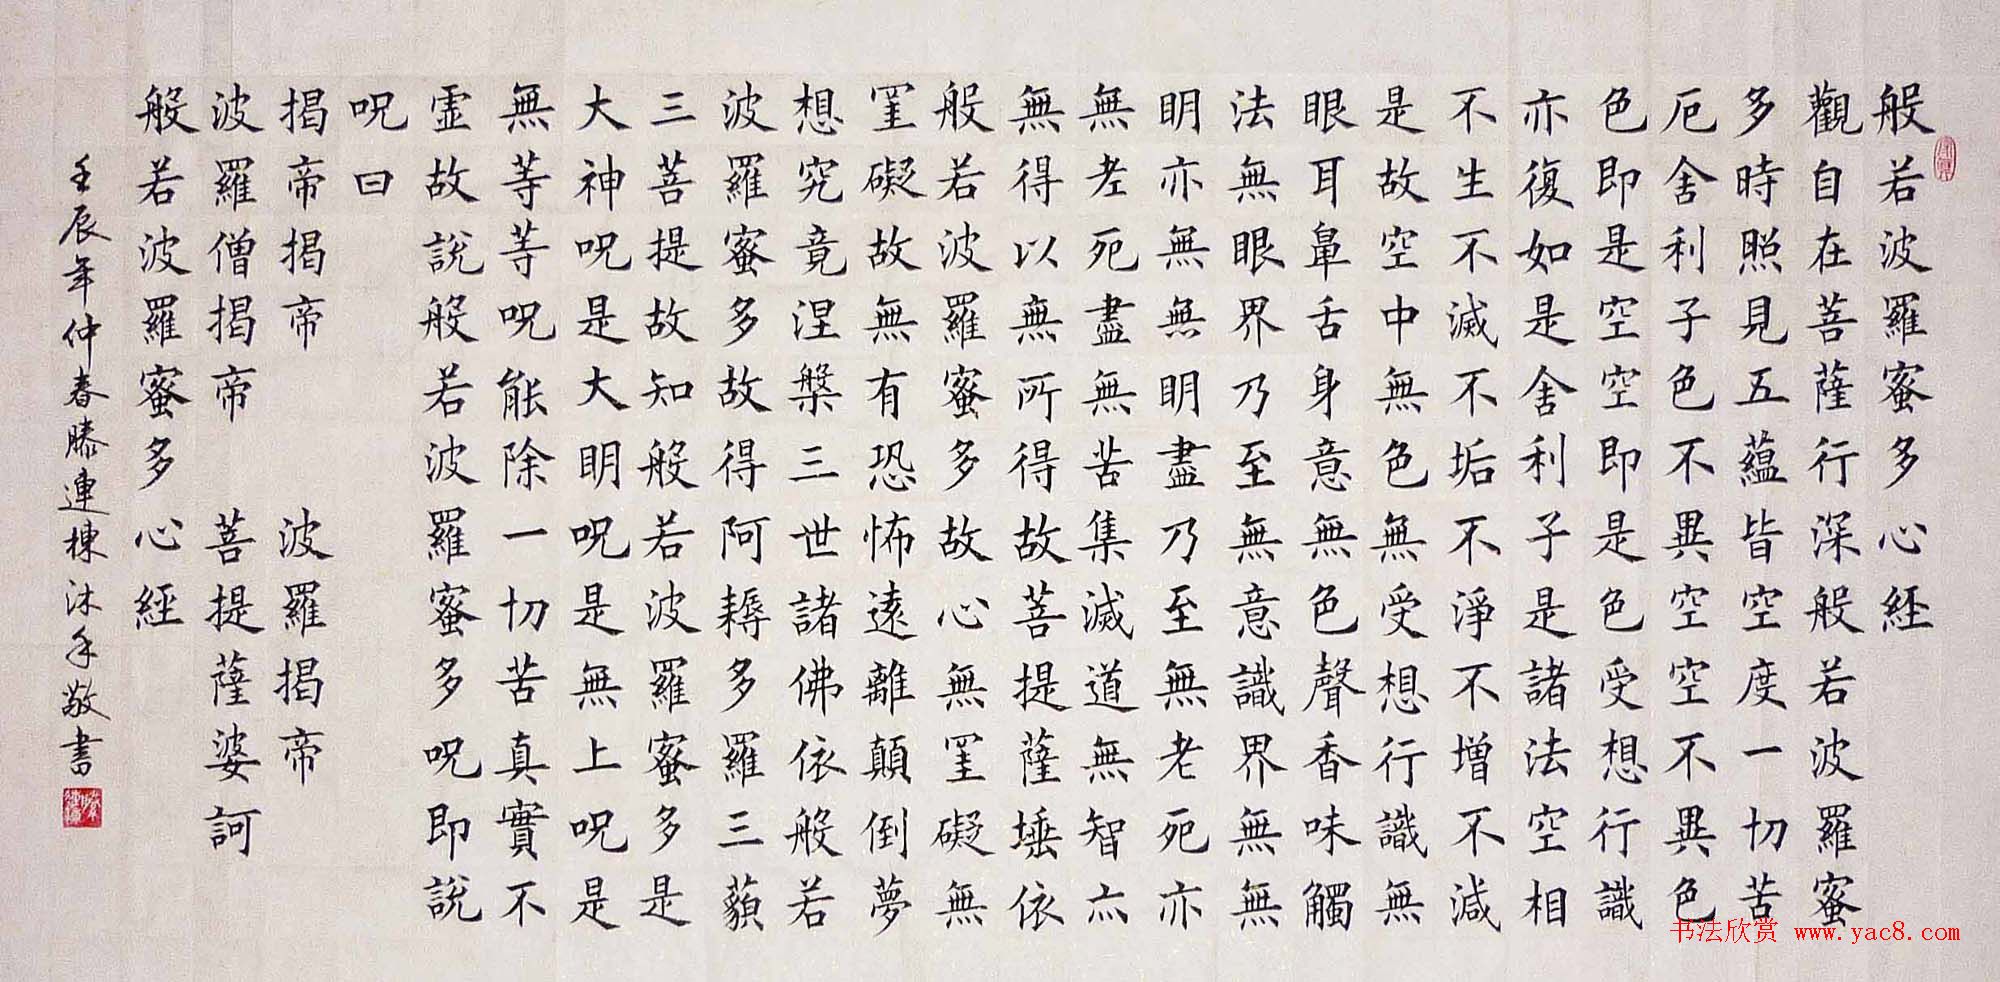 般若波羅蜜多心経
觀自在菩薩行深般若波羅蜜
多時照見五蘊皆空度一切苦
厄舍利子色不異空空不異色
色即是空空即是色受想行識
亦復如是舍利子是諸法空相
不生不滅不垢不淨不增不減
是故空中無色無受想行識無
眼耳鼻舌身意無色聲香味觸
法無眼界乃至無意識界無無
明亦無無明盡乃至無老死亦
無老死盡無苦集滅道無智亦
無得以無所得故菩提薩埵依
般若波羅蜜多故心無罣礙無
罣礙故無有恐怖遠離顛倒夢
想究竟涅槃三世諸佛依般若
波羅蜜多故得阿耨多羅三藐
三菩提故知般若波羅蜜多是
大神呪是大明呪是無上呪是
無等等呪能除一切苦真實不
虛故說般若波羅蜜多呪即說
呪曰
揭帝揭帝 波羅揭帝
波羅僧揭帝 菩提薩婆訶
般若波羅蜜多心経
壬辰年仲春滕連棟沐手敬書
书法欣赏 www.yac8.com